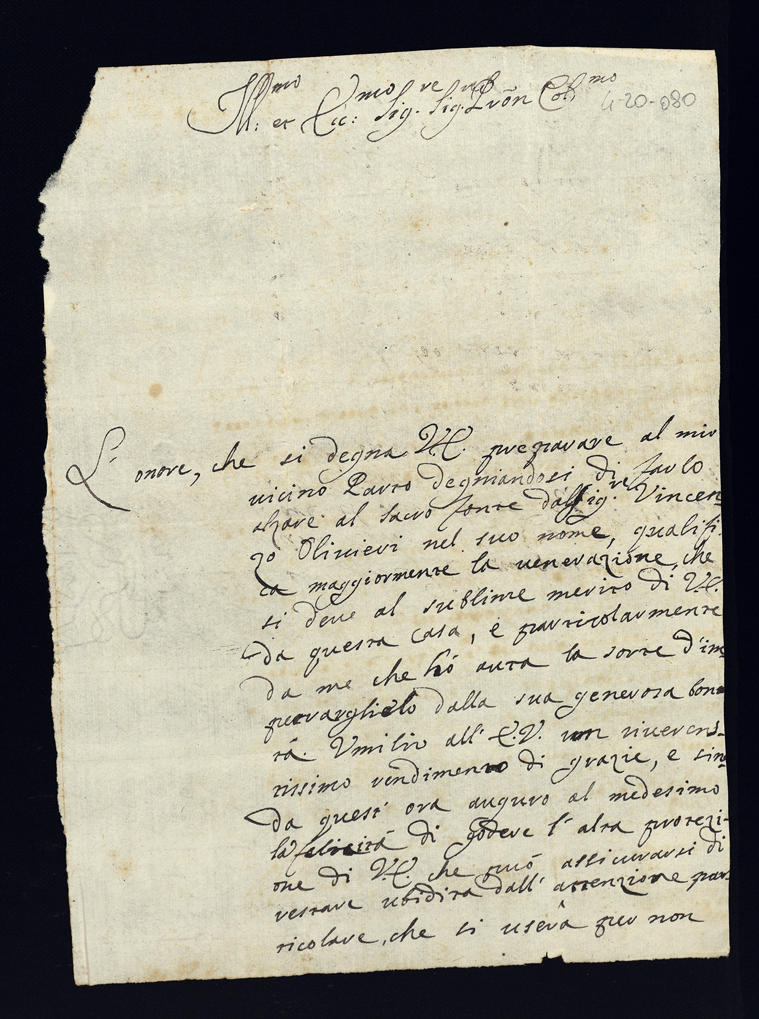 Ill:mo et Ecc:mo Sig.re Sig.re Prõn Col.mo
4-20-080
L' onore, che si degna V.E. preparare al mio
vicino Parto degniandosi di farlo
al sacro fonte dall Sig.re Vincen-
zo Olivieri nel suo nome, qualifi-
ca maggiormente la venerazione, che
si deve al sublime merito di V.E.
da questa casa, e particolarmente
da me che hò auta la sorte d'im-
petrarglielo dalla sua generosa bon-
tà. Umilio all' E.V. un riveren-
tissimo rendimento di grazie, e sin
da quest' ora auguro al medesimo
la felicità di godere l' alta protezi-
one di V.E. che può assicurarsi di
restare ubidita dall' attenzione par-
ticolare, che si userà per non